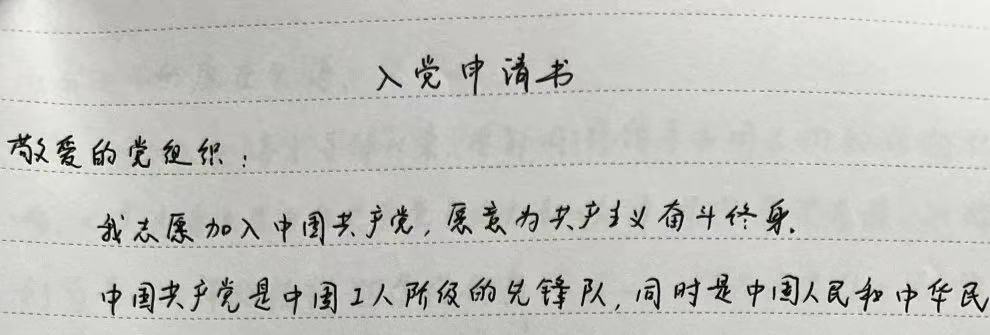 入党申请书
敬爱的党组织：
我志愿加入中国共产党，愿意为共产主义奋斗终身.
中国共产党是中国工人阶级的先锋队，同时是中国人民和中华民